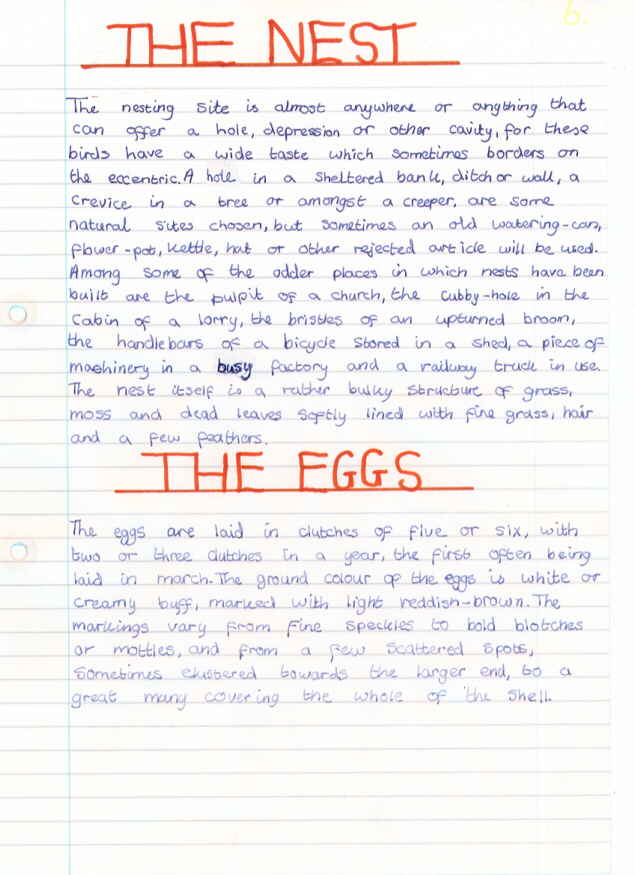 6.
THE NEST
The nesting site is almost anywhere or anything that
can offer a hole, depression or other cavity, for these
birds have a wide taste which sometimes borders on
the eccentric. A hole in a sheltered bank, ditch or wall, a
crevice in a tree or amongst a creeper, are some
natural sites chosen, but sometimes an old watering-can,
flower-pot, kettle, hat or other rejected article will be used.
Among some of the odder places in which nests have been
built are the pulpit of a church, the cubby-hole in the
cabin of a lorry, the bristles of an upturned broom,
the handlebars of a bicycle stored in a shed, a piece of
machinery in a busy factory and a railway truck in use.
The nest itself is a rather bulky structure of grass,
moss and dead leaves softly lined with fine grass, hair
and a few feathers.
THE EGGS
The eggs are laid in clutches of five or six, with
two or three clutches in a year, the first often being
laid in march. The ground colour of the eggs is white or
creamy buff, marked with light reddish-brown. The
markings vary from fine speckles to bold blotches
or mottles, and from a few scattered spots,
sometimes clustered towards the larger end, to a
great many covering the whole of the shell.